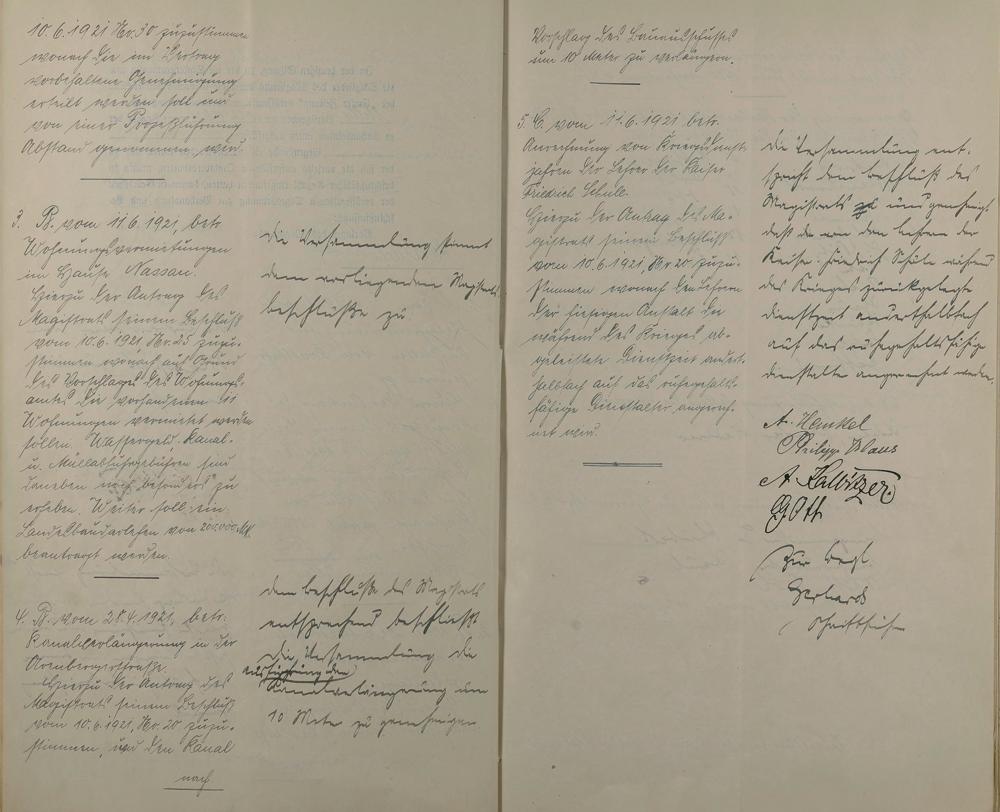 10.6.1921 Nr. 30 zuzustimmen
wonach die im Vertrag
vorbehaltene Genehmigung
erteilt werden soll und
von einer Prozeßführung
Abstand genommen wird.
3. B. vom 11.6.1921, betr.
Wohnungsvermietungen
im Hause Nassau.
Hierzu der Antrag des
Magistrats seinem Beschluß
vom 10.6.1921 Nr. 25 zuzu-
stimmen wonach auf Grund
des Vorschlages des Wohnungs-
amtes die vorhandenen 11
Wohnungen vermietet werden
sollen. Wassergeld, Kanal-
u. Müllabfuhrgebühren sind
daneben noch besonders zu
erheben. Weiter soll ein
Landesbaudarlehen von 200.000 M.
beantragt werden.
4. B. vom 28.4.1921, betr.
Kanalverlängerung in der
Arenbergerstraße.
Hierzu der Antrag des
Magistrats seinem Beschluß
vom 10.6.1921, Nr. 20 zuzu-
stimmen, und den Kanal
nach
die Versammlung stimmt
dem vorliegenden Magistrats
beschluße zu
dem beschluße des Magistrats
entsprechend beschließt
die Versammlung die
ausführung der
Kanalverlängerung um
10 Meter zu genehmigen
Vorschlag des Bauausschusses
um 10 Meter zu verlängern.
5. B. vom 11.6.1921 betr.
Anrechnung von Kriegsdienst-
jahren der Lehrer der Kaiser
Friedrich Schule.
Hierzu der Antrag des Ma-
gistrats seinem Beschluß
vom 10.6.1921, Nr 20 zuzu-
stimmen wonach den Lehrern
der hiesigen Anstalt die
während des Krieges ab-
geleistete Dienstzeit andert-
halbfach auf das ruhegehalts-
fähige Dienstalter angerech-
net wird.
die Versammlung ent-
spricht dem beschluß des
Magistrats und genehmigt
daß die von den lehrern der
Kaiser-Friedrich Schule während
des Krieges zurückgelegte
dienstzeit anderthalbfach
auf das ruhegehaltsfähige
dienstalter angerechnet werden.
A. Henkel
Philipp Klaus
A. Kalbitzer.
G Ott
Zur Begl.
Gerhards
Schriftführer